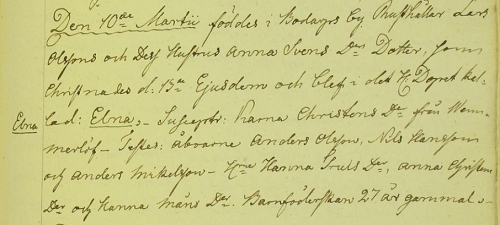 Den 10de Martii föddes i Bodarps by Rusthållar Lars
Olssons och Dess Hustrus Anna Svens Drs Dotter, som
Christnades d: 13de Ejusdem och blef i det H. Dopet kal-
Elna
lad: Elna, - Susceptr: Karna Christens Dr från Wem-
merlöf - Testes: åboarne Anders Olsson, Nils Hansson
och Anders Mikelson - H:ne Hanna Truls Der, Anna Christens
Der och Hanna Måns Der. Barnföderskan 27 år gammal -